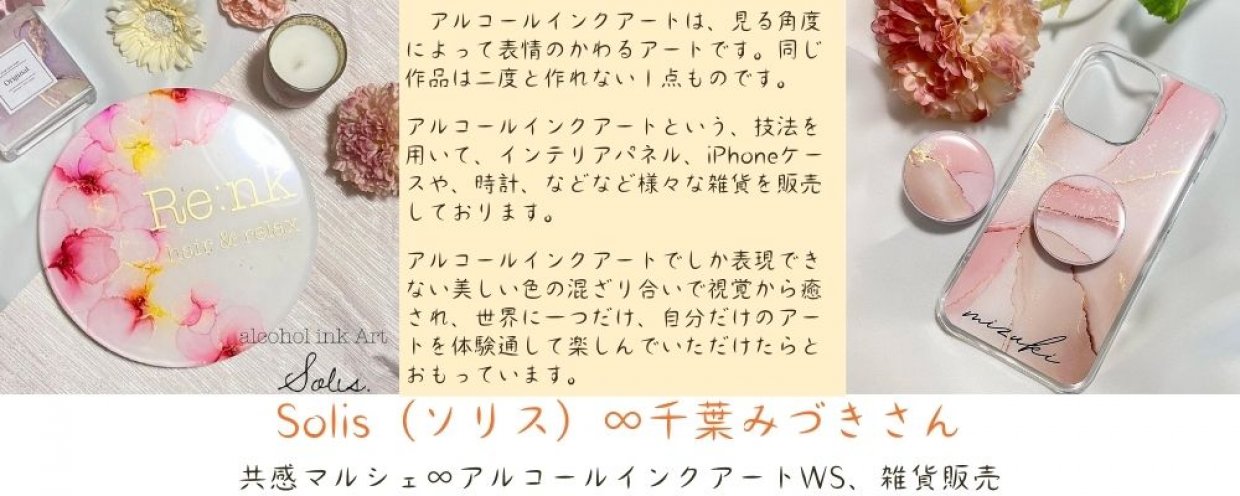 アルコールインクアートは、見る角度
によって表情のかわるアートです。同じ
作品は二度と作れない1点ものです。
アルコールインクアートという、技法を
用いて、インテリアパネル、iPhoneケー
スや、時計、などなど様々な雑貨を販売
しております。
アルコールインクアートでしか表現でき
ない美しい色の混ざり合いで視覚から癒
され、世界に一つだけ、自分だけのアー
トを体験通して楽しんでいただけたらと
おもっています。
Original
Re:nk
hair & relax
alcohol ink Art
Solis.
mizuki
Solis（ソリス）∞千葉みづきさん
共感マルシェ∞アルコールインクアートWS、雑貨販売